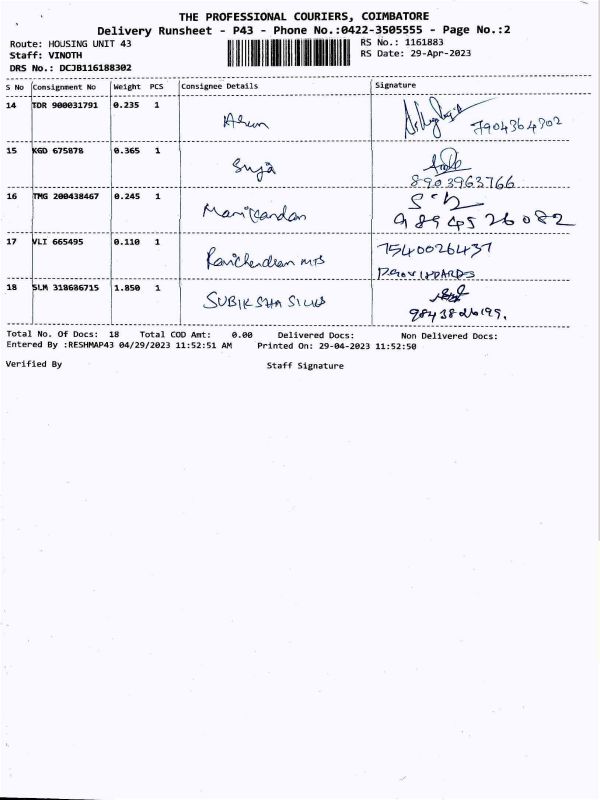 THE PROFESSIONAL COURIERS, COIMBATORE
Delivery Runsheet - P43 - Phone No.:0422-3505555 - Page No.:2
Route: HOUSING UNIT 43
RS No.: 1161883
Staff: VINOTH
RS Date: 29-Apr-2023
DRS No.: DCJB116188302
S No Consignment No Weight PCS Consignee Details Signature
14 TDR 900031791 0.235 1
Arun 7904364902
15 KGD 675878 0.365 1
Suja
8903963766
16 TMG 200438467 0.245 1
Manikandan 9894526082
17 VLI 665495 0.110 1 7540026437
Ravichandran MTS
18 SLM 318686715 1.850 1
SUBIKSHA SILKS
9843826195.
Total No. Of Docs: 18 Total COD Amt: 0.00 Delivered Docs: Non Delivered Docs:
Entered By :RESHMAP43 04/29/2023 11:52:51 AM Printed On: 29-04-2023 11:52:50
Verified By Staff Signature